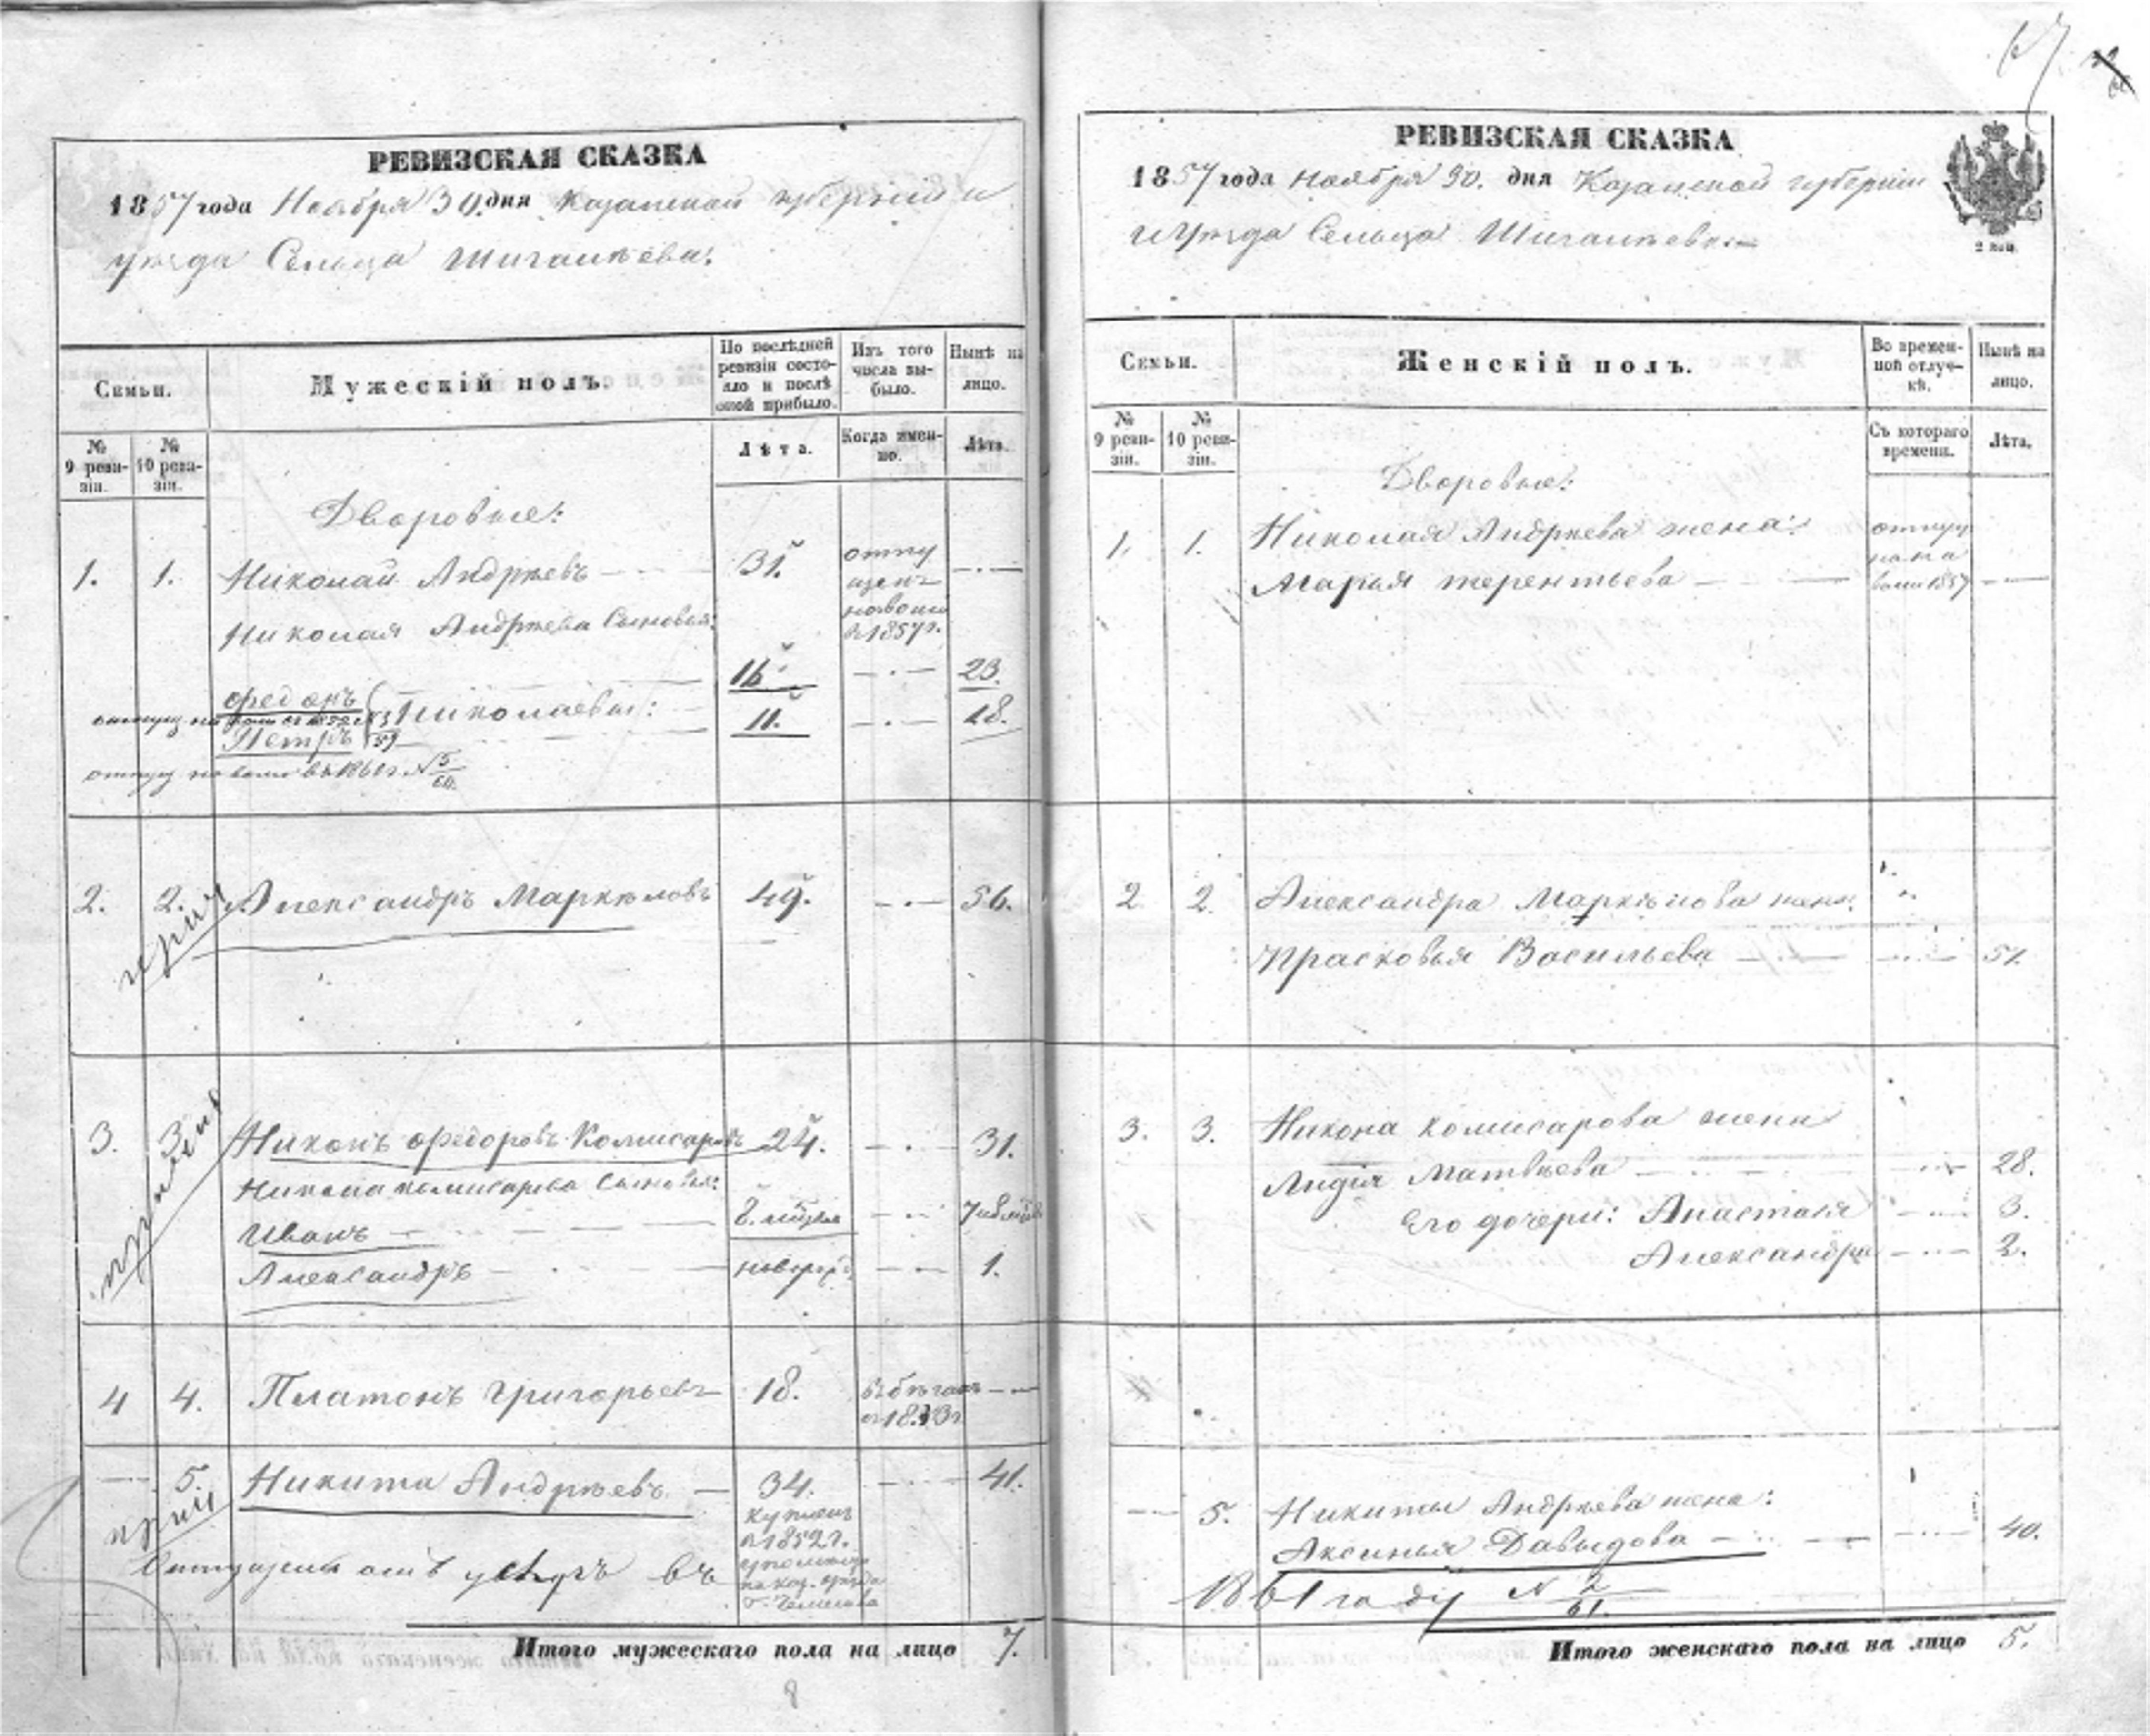 РЕВИЗСКАЯ СКАЗКА
1857 года Ноября 30. дня Казанской губерніи и
уѣзда Сельца Шигалѣева.
Семьи.
Мужескій полъ.
По послѣдней ревизіи состояло и послѣ оной прибыло.
Изъ того числа выбыло.
Нынѣ на лицо.
№ 9 ревизіи.
№ 10 ревизіи.
Лѣта.
Когда именно.
Лѣта.
Дворовые:
1. 1. Николай Андреевъ 31. отпущенъ на волю въ 1857 г.
Николая Андреева Сыновья:
16. 23.
Николаевы:
Петръ 11. 18.
отпущ. на волю въ 1861 г. № 5/60.
2. 2. Александръ Маркѣловъ 49. 56.
3. 3. Никонъ Федоровъ Комисаровъ 24. 31.
Никона Комисарова Сыновья:
Иванъ
Александръ новорож. 1.
4 4. Платонъ Григорьевъ 18. въ бѣгахъ
5. Никита Андреевъ 34. 41.
купленъ
въ 1852 г.
въ
Итого мужескаго пола на лицо 7.
8
67
РЕВИЗСКАЯ СКАЗКА
1857 года Ноября 30. дня Казанской губерніи
и Уѣзда Сельца Шигалѣева
2 коп.
Семьи.
Женскій полъ.
Во временной отлучкѣ.
Нынѣ на лицо.
№ 9 ревизіи.
№ 10 ревизіи.
Съ котораго времени.
Лѣта.
Дворовые:
1. 1. Николая Андреева жена:
Марья Терентьева
2 2. Александра Маркѣлова жена.
Прасковья Васильева 51.
3. 3. Никона Комисарова жена
Лидія Матвѣева 28.
Его дочери: Анастасія 3.
Александра 2.
5. Никиты Андреева жена:
Аксинья Давыдова 40.
1861 году № 2/61.
Итого женскаго пола на лицо 5.